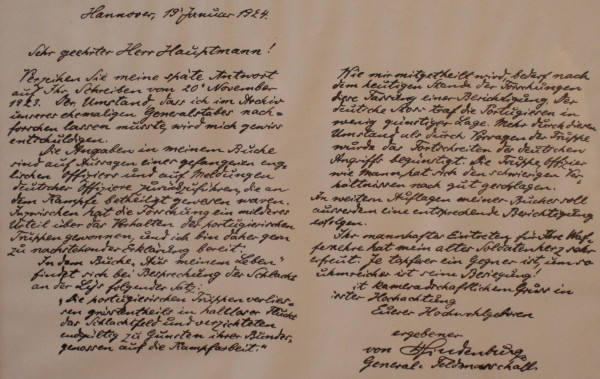 Hannover, 19. Januar 1924.
Sehr geehrter Herr Hauptmann!
Verzeihen Sie meine späte Antwort
auf Ihr Schreiben vom 20. November
1923. Der Umstand dass ich im Archiv
unseres ehemaligen Generalstabes nach-
forschen lassen musste, wird mich gewiss
entschuldigen.
Die Angaben in meinem Buche
sind auf Aussagen eines gefangenen eng-
lischen Offiziers und auf Meldungen
deutscher Offiziere zurückzuführen, die an
dem Kampfe betheiligt gewesen waren.
Inzwischen hat die Forschung ein milderes
Urteil über das Verhalten der portugiesischen
Truppen gewonnen, und ich bin daher gern
zu nachstehender Erklärung bereit:
In dem Buche „Aus meinem Leben"
findet sich bei Besprechung der Schlacht
an der Lys folgender Satz:
„Die portugiesischen Truppen verlies-
sen grösstenteils in haltloser Flucht
das Schlachtfeld und verzichteten
endgültig zu Gunsten ihrer Bundes-
genossen auf die Kampfarbeit."
Wie mir mitgetheilt wird, bedarf nach
dem heutigen Stande der Forschungen
diese Fassung einer Berichtigung. Der
deutsche Stoss traf die Portugiesen in
wenig günstiger Lage. Mehr durch diesen
Umstand als durch Versagen der Truppe
wurde das Fortschreiten des deutschen
Angriffs begünstigt. Die Truppe, Offizier
wie Mann, hat sich den schwierigen Ver-
hältnissen nach gut geschlagen.
In weitern Auflagen meines Buches soll
ausserdem eine entsprechende Berichtigung
erfolgen.
Ihr mannhaftes Eintreten für Ihre Waf-
fenehre hat mein altes Soldatenherz sehr
erfreut. Je tapferer ein Gegner ist, um so
ruhmreicher ist seine Besiegung!
Mit kameradschaftlichem Gruss in
Hochachtung
Euerer Hochwohlgeboren
ergebener
von Hindenburg
General-Feldmarschall.